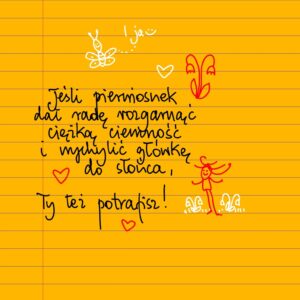 ! ja
Jeśli pierwiosnek
dał radę rozgarnąć
ciężką ciemność
i wychylić główkę
do słońca,
Ty też potrafisz!